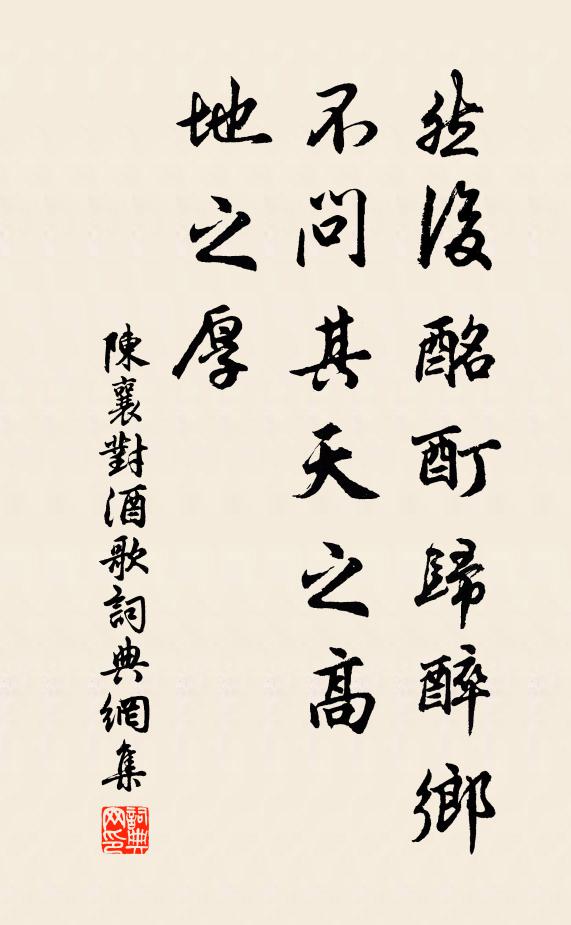 然後酩酊歸醉鄉
不問其天之高
地之厚
陳襄對酒歌詞典網集
詞典
网印